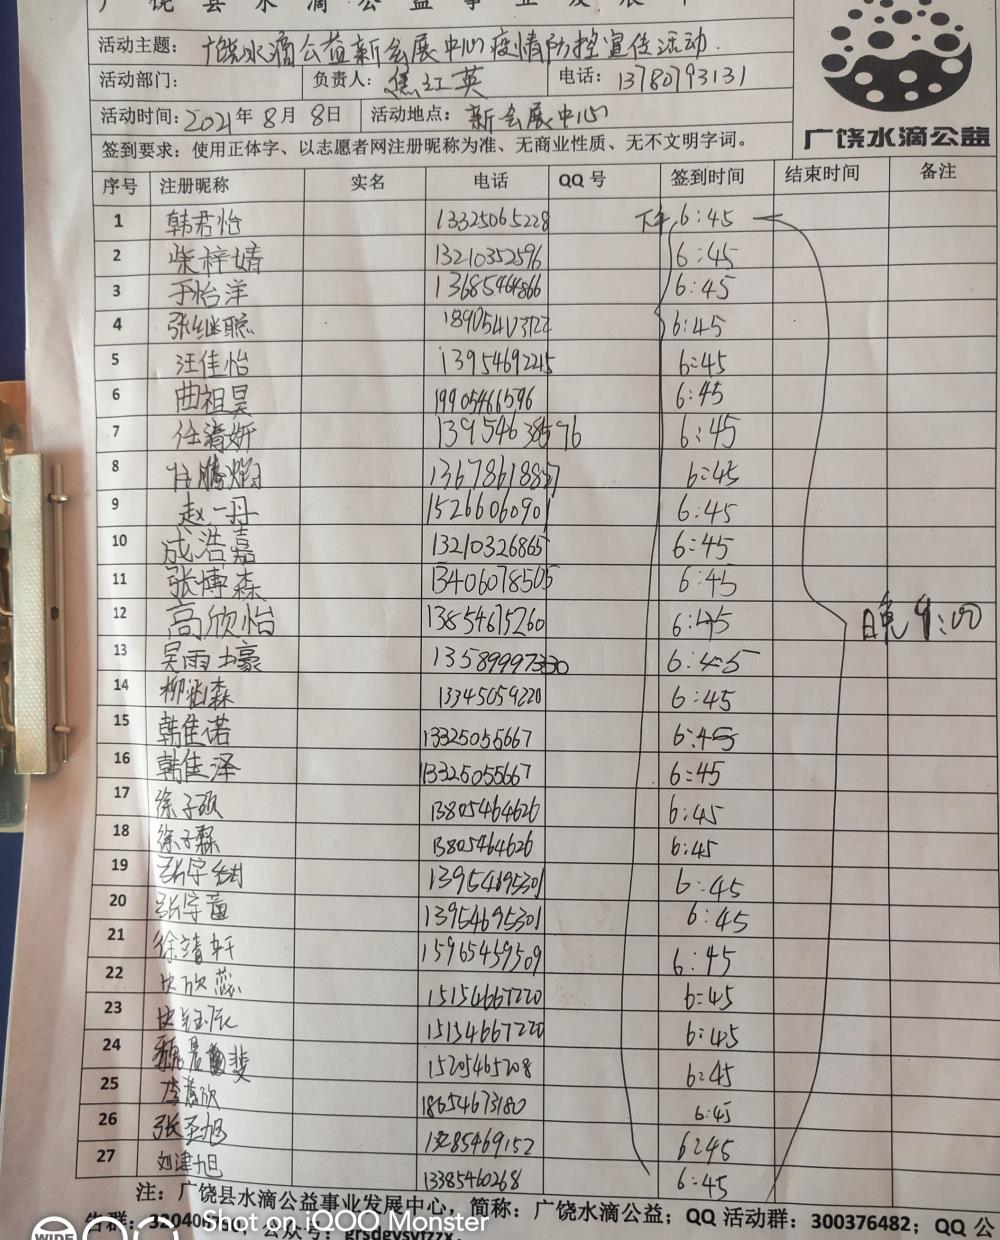 广饶县水滴公益事业发展中
活动主题： 广饶水滴公益新会展中心疫情防控宣传活动.
活动部门： 负责人： 焦江英 电话： 13780793131
活动时间: 2021年 8月 8日 活动地点： 新会展中心
广饶水滴公益
签到要求：使用正体字、以志愿者网注册昵称为准、无商业性质、无不文明字词。
序号 注册昵称 实名 电话 QQ 号 签到时间 结束时间 备注
1 韩君怡 13325065228 下午 6:45
2 柴梓婧 13210352596 6:45
3 于怡洋 13685464866 6:45
4 张继聪 6:45
5 汪佳怡 13954692245 6:45
6 曲祖昊 19905466596 6:45
7 任清妍 13954638576 6:45
8 任腾 13678618857 6:45
9 赵一丹 15266060901 6:45
10 成浩嘉 13210326865 6:45
11 张博森 13406078505 6:45
12 高欣怡 13854615260 6:45
晚 9:00
13 吴雨土豪 6:45
14 柳 森 13345059220 6:45
15 韩佳诺 13325055667 6:45
16 韩佳泽 13325055667 6:45
17 徐子硕 13805464626 6:45
18 徐子霖 13805464626 6:45
19 张宇 13954695301 6:45
20 张宇菡 13954695301 6:45
21 徐靖轩 15965459509 6:45
22 史欣蕊 15154667220 6:45
23 史 辰 15154667220 6:45
24 魏 斐 15205465208 6:45
25 李 欣 18654673180 6:45
26 张圣旭 85469152 6:45
27 刘津旭 13385460268 6:45
注：广饶县水滴公益事业发展中心，简称：广饶水滴公益；QQ 活动群：300376482；QQ 公
告群： 公众号：
Shot on iQOO Monster
WIDE